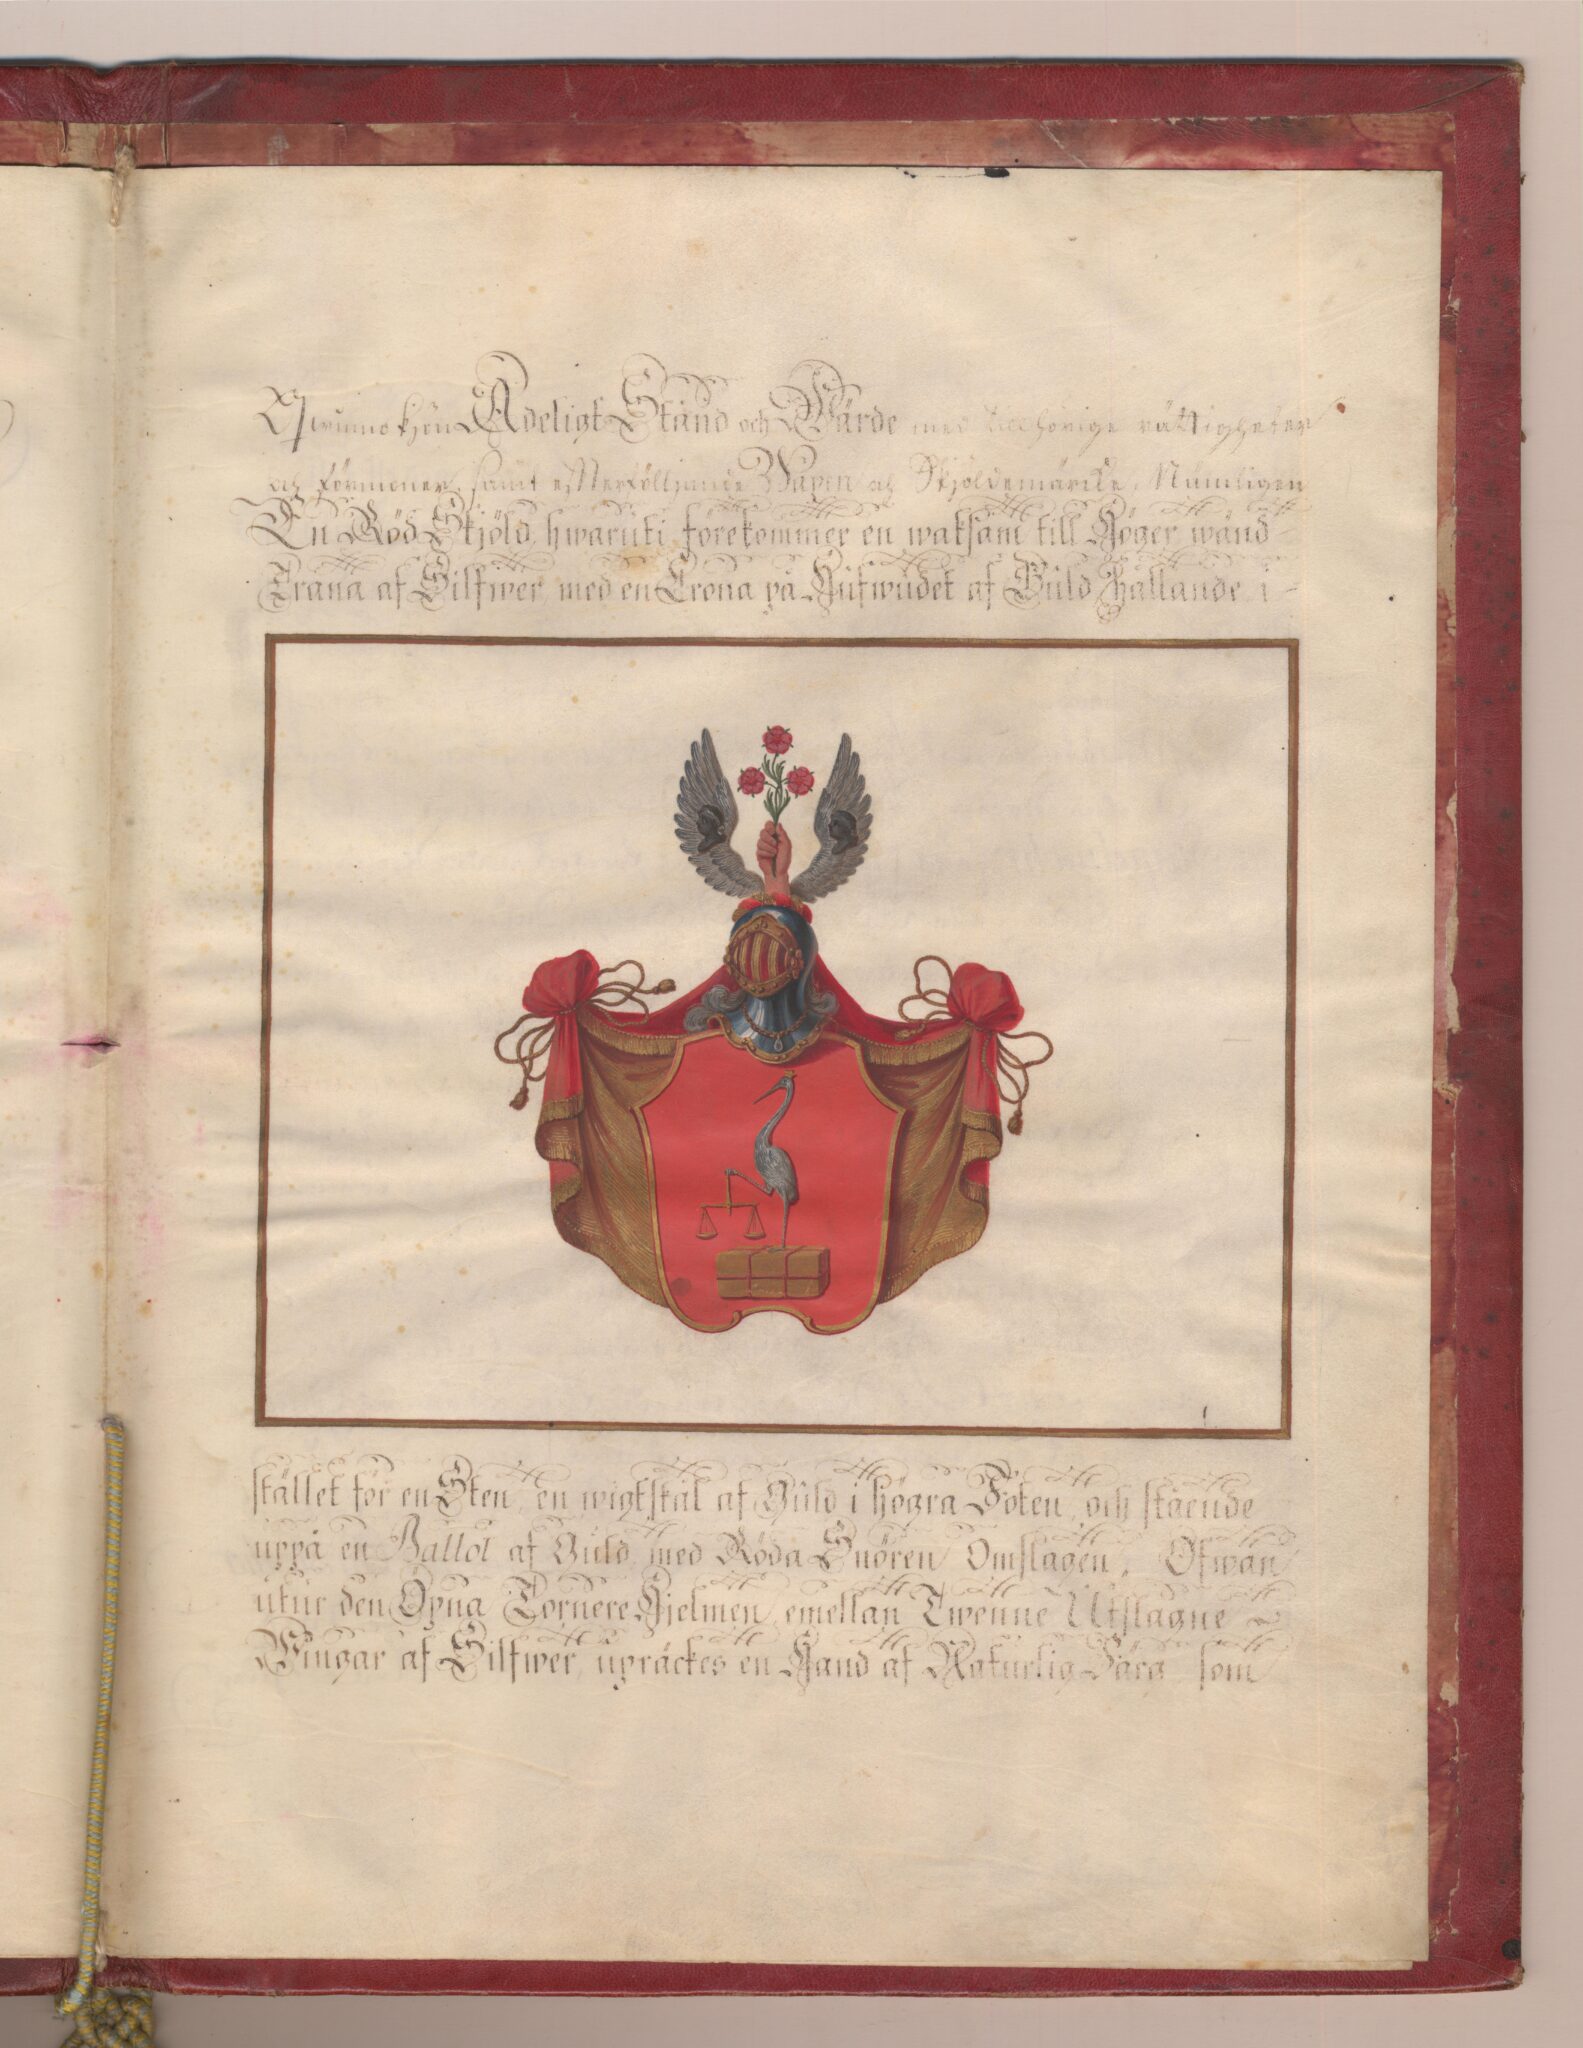 Qwinnokjön Adeligt Stånd och Wärde med tillhörige rättigheter
och förmoner, samt efterföljande Wapen och Skjöldemärcke, Nämligen
En Röd Skjöld, hwaruti förekommer en waksam till Höger wänd
Trana af Silfwer, med en Crona på Hufwudet af Guld hållande i
stället för en Sten, en wigtskål af Guld i högra Foten, och stående
uppå en Ballot af Guld med Röda Snören Omslagen. Ofwan
utur den Öpna Tornere Hjelmen, emellan Twenne Utslagne
Wingar af Silfwer, upräckes en Hand af Naturlig Färg, som